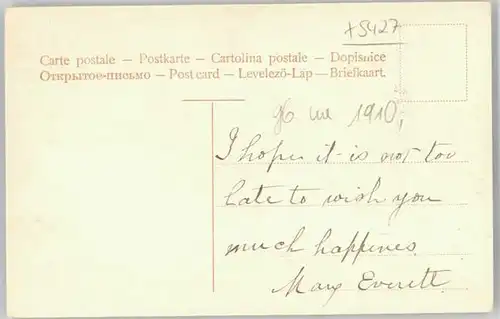 x5427
Carte postale — Postkarte — Cartolina postale — Dopisnice
Открытое-письмо — Post card — Levelező-Lap — Briefkaart.
1910,
I hope it is not too
late to wish you
much happines
Mary Everett